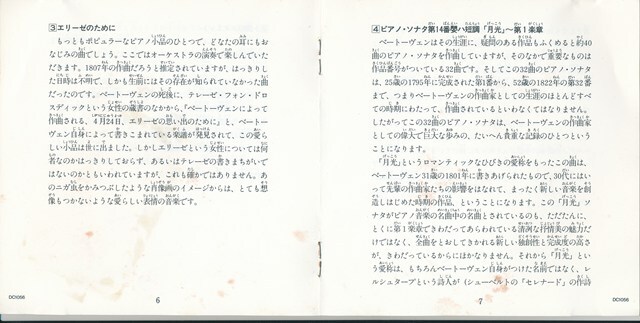 ③エリーゼのために
　もっともポピュラーなピアノ小品のひとつで、どなたの耳にもお
なじみの曲でしょう。ここではオーケストラの演奏で楽しんでいた
だきます。1807年の作曲だろうと推定されていますが、はっきりし
た日時は不明で、しかも生前にはその存在が知られていなかった曲
だったのです。ベートーヴェンの死後に、テレーゼ・フォン・ドロ
スディックという女性の蔵書のなかから、「ベートーヴェンによって
作曲される、4月24日、エリーゼの思い出のために」と、ベートー
ヴェン自身によって書きこまれている楽譜が発見されて、この愛ら
しい小品は世に出ました。しかしエリーゼという女性については何
者なのかはっきりしておらず、あるいはテレーゼの書きまちがいで
はないのかともいわれていますが、これも確かではありません。あ
のニガ虫をかみつぶしたような肖像画のイメージからは、とても想
像もつかないような愛らしい表情の音楽です。
DCI056
6
④ピアノ・ソナタ第14番嬰ハ短調「月光」〜第１楽章
　ベートーヴェンはその生涯に、疑問のある作品もふくめると約40
曲のピアノ・ソナタを作曲していますが、そのなかで重要なものは
作品番号がついている32曲です。そしてこの32曲のピアノ・ソナタ
は、25歳の1795年に完成された第1番から、52歳の1822年の第32番
まで、つまりベートーヴェンの作曲家としての生涯のほとんどすべ
ての時期にわたって、作曲されているといわなくてはなりません。
したがってこの32曲のピアノ・ソナタは、ベートーヴェンの作曲家
としての偉大で巨大な歩みの、たいへん貴重な記録のひとつという
ことになります。
　「月光」というロマンティックなひびきの愛称をもったこの曲は、
ベートーヴェン31歳の1801年に書きあげられたもので、30代にはい
って先輩の作曲家たちの影響をはなれて、まったく新しい音楽を創
造しはじめた時期の作品、ということになります。この「月光」ソ
ナタがピアノ音楽の名曲中の名曲とされているのも、ただたんに、
とくに第１楽章できわだってあらわれている清冽な抒情美の魅力だ
けではなく、全曲をとおしてきかれる新しい独創性と完成度の高さ
が、きわだっているからにほかなりません。それから「月光」とい
う愛称は、もちろんベートーヴェン自身がつけた名前ではなく、レ
ルシュタープという詩人が（シューベルトの「セレナード」の作詩
7
DCI056